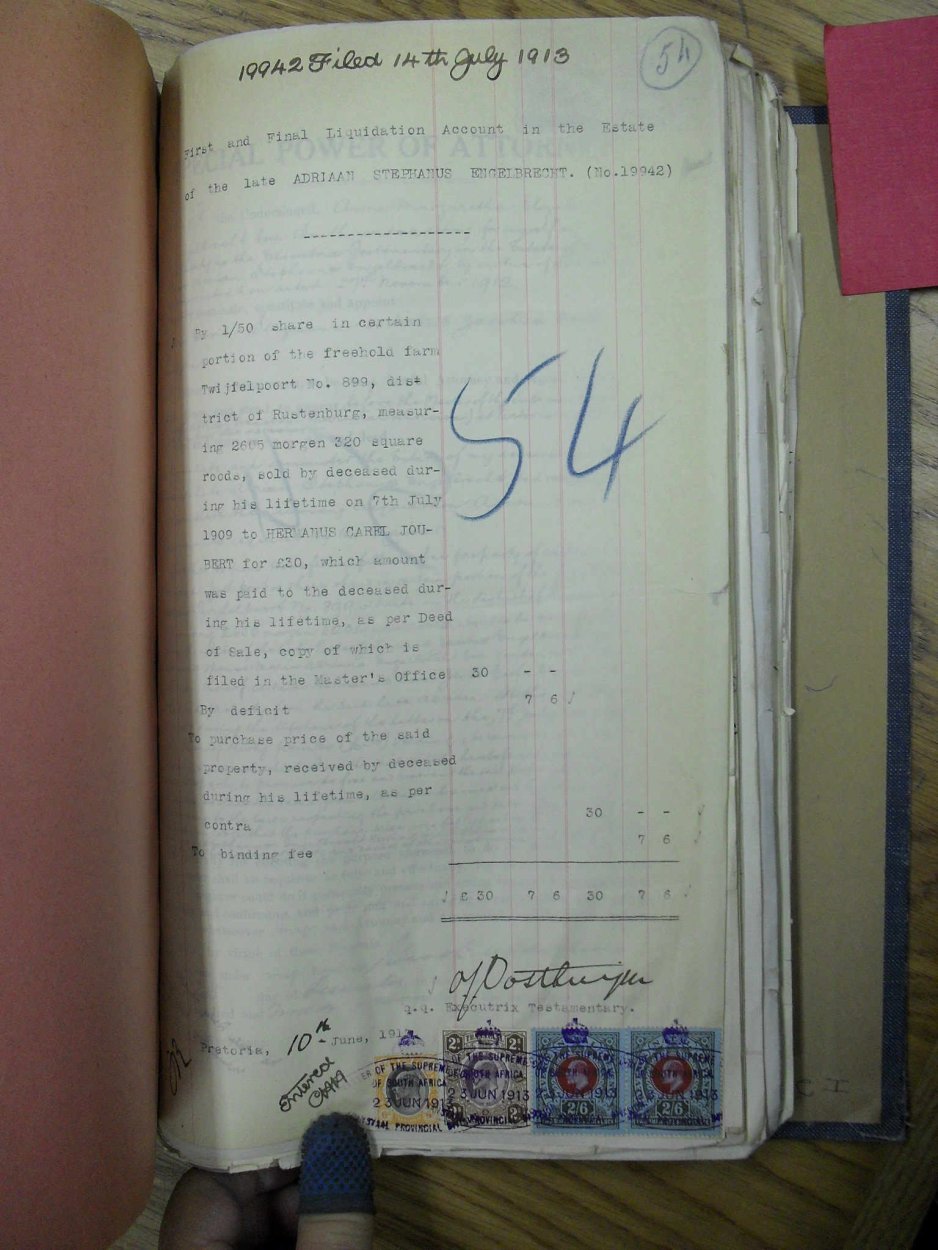 19942 Filed 14th July 1913
54
First and Final Liquidation Account in the Estate
of the late ADRIAAN STEPHANUS ENGELBRECHT. (No.19942)
By 1/50 share in certain
portion of the freehold farm
Twijfelpoort No. 899, dis-
trict of Rustenburg, measur-
ing 2605 morgen 320 square
roods, sold by deceased dur-
ing his lifetime on 7th July
1909 to HERMANUS CAREL JOU-
BERT for £30, which amount
was paid to the deceased dur-
ing his lifetime, as per Deed
of Sale, copy of which is
filed in the Master's Office 30 - -
By deficit 7 6
To purchase price of the said
property, received by deceased
during his lifetime, as per
contra 30 - -
To binding fee 7 6
£ 30 7 6 30 7 6
54
q.q. Executrix Testamentary.
Pretoria, 10th June, 191
Entered
OF THE SUPREME
OF SOUTH AFRICA
23 JUN 1913
PROVINCIAL
2/6
2/6